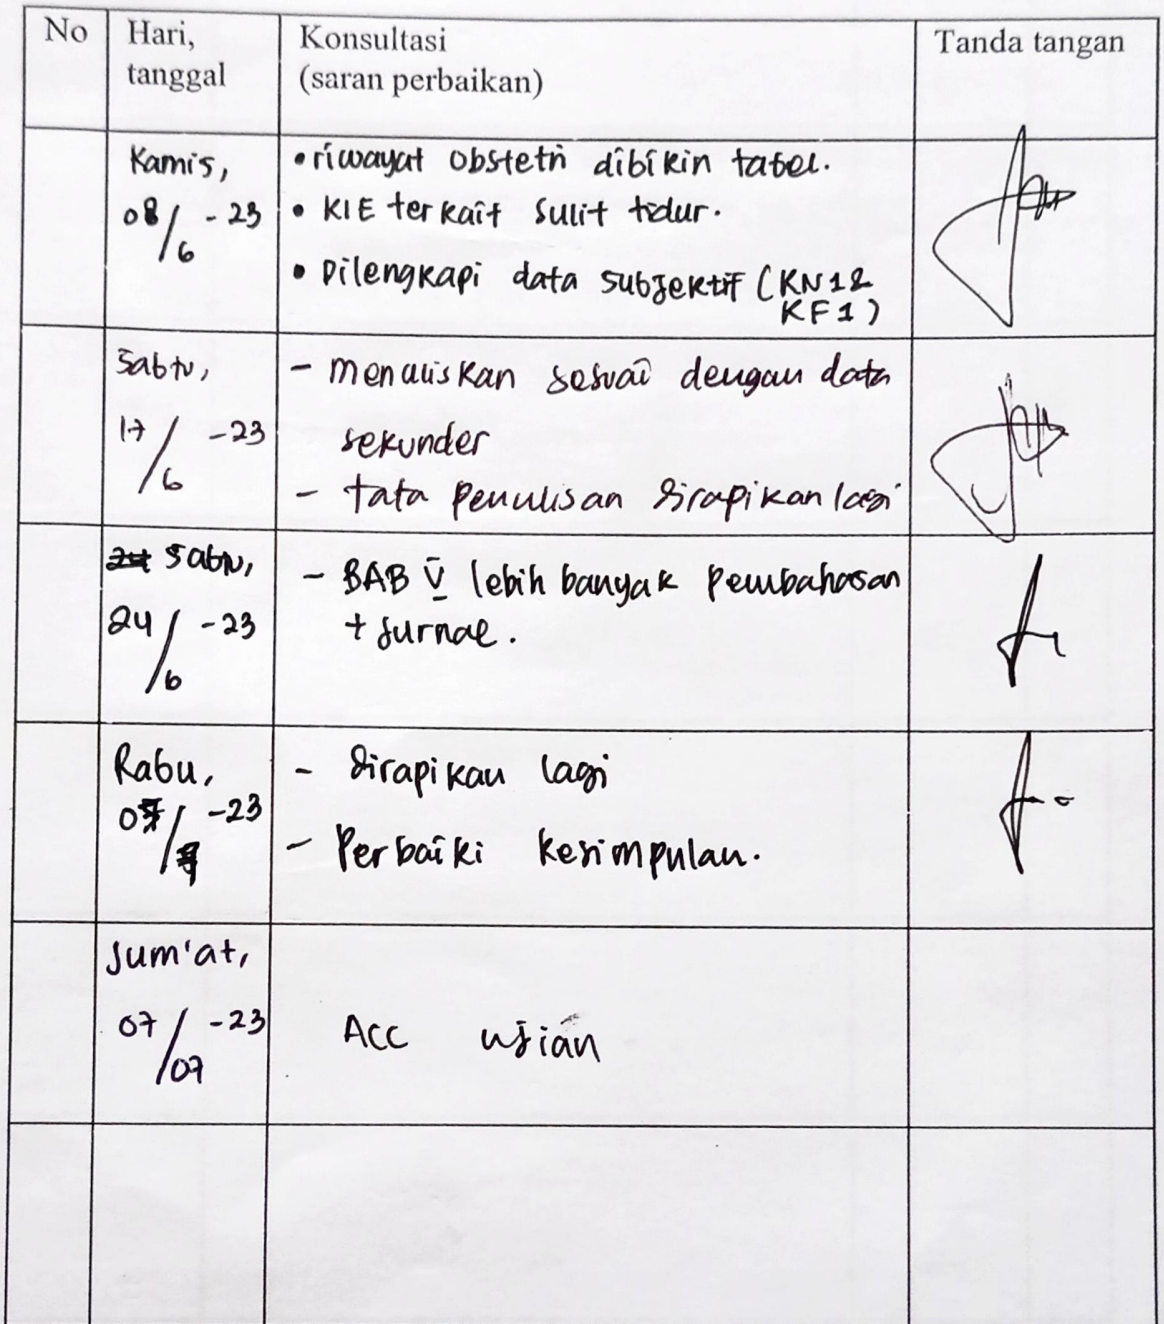 No
Hari,
tanggal
Konsultasi
(saran perbaikan)
Tanda tangan
Kamis,
08/6 -23
• riwayat obstetri dibikin tabel.
• KIE terkait sulit tidur.
• Dilengkapi data subjektif (KN1 &
KF1)
Sabtu,
17/6 -23
- menuliskan sesuai dengan data
sekunder
- tata penulisan dirapikan lagi
Sabtu,
24/6 -23
- BAB V lebih banyak pembahasan
+ jurnal.
Rabu,
-23
- dirapikan lagi
- Perbaiki kesimpulan.
Jum'at,
07/07 -23
Acc ujian